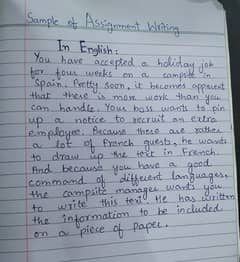 Sample of Assignment Writing
In English:
You have accepted a holiday job
for four weeks on a campsite in
Spain. Pretty soon, it becomes apparent
that there is more work than you
can handle. Your boss wants to pin
up a notice to recruit an extra
employee. Because there are rather
a lot of French guests, he wants
to draw up the text in French.
And because you have a good
command of different languages,
the campsite manager wants you
to write this text. He has written
the information to be included
on a piece of paper.